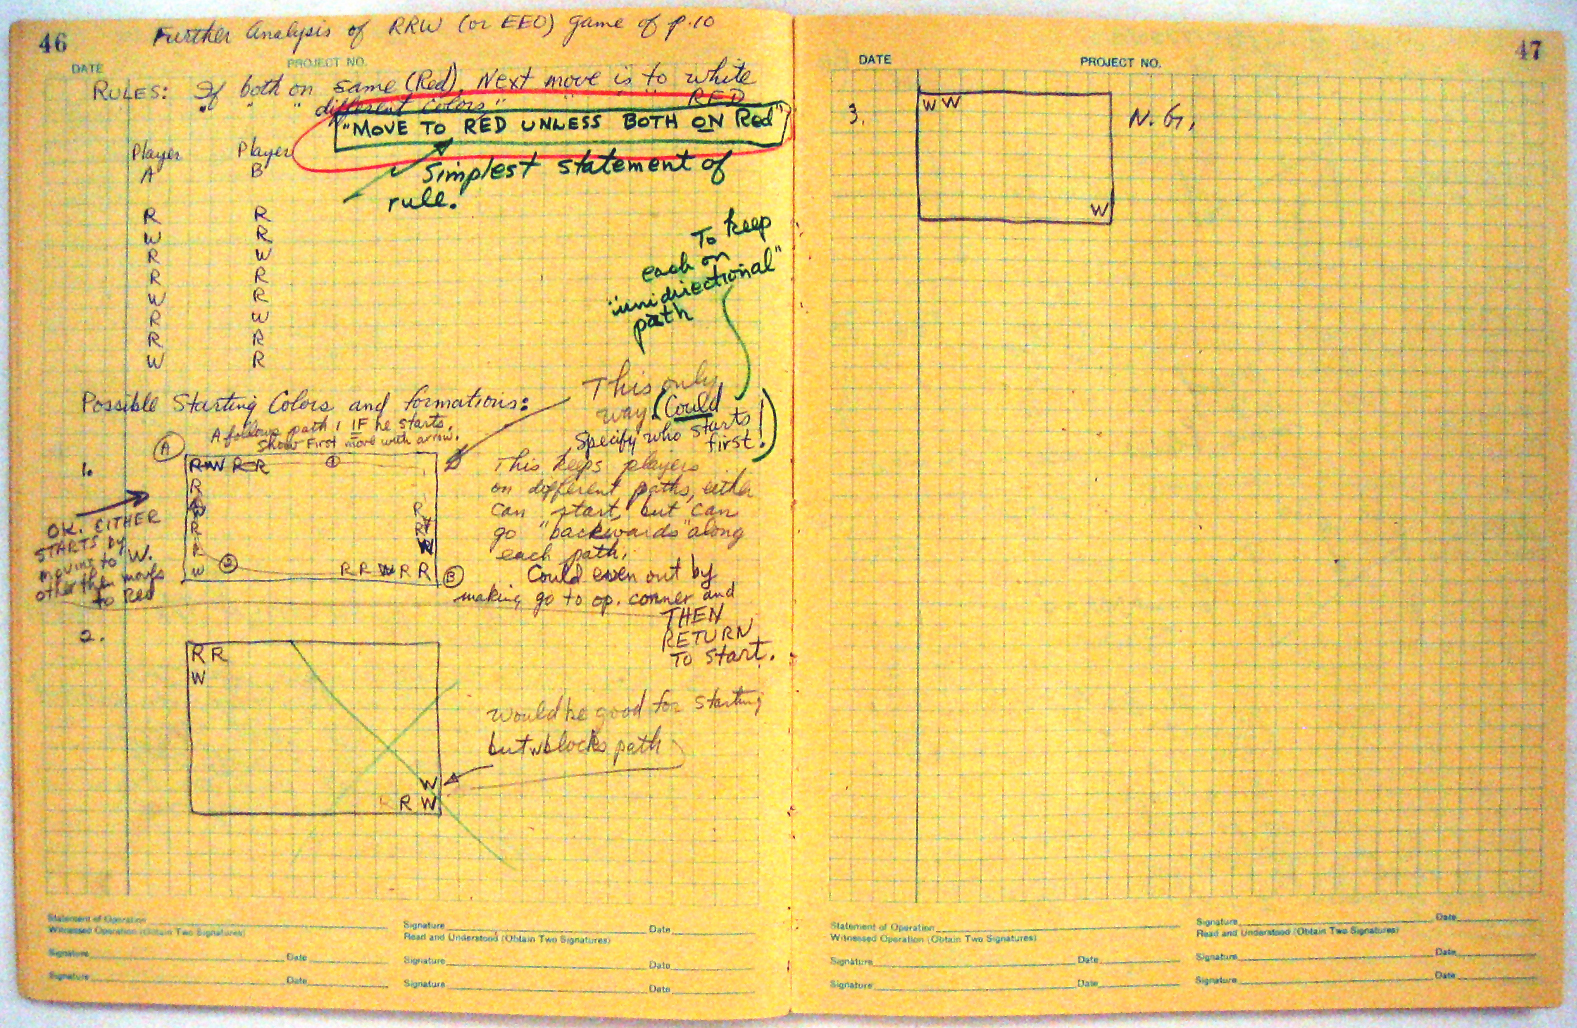 46
Further Analysis of RRW (or EEO) game of p.10
DATE
PROJECT NO.
RULES: If both on same (Red), Next move is to white
" " " different colors " " " " RED
"MOVE TO RED UNLESS BOTH ON Red"
Simplest statement of
rule.
Player Player
A B
R R
W R
R W
R R
W R
R W
R R
W R
To keep
each on
"unidirectional"
path
Possible Starting Colors and formations:
This only
way. (Could
specify who starts
first!)
A follows path 1 IF he starts.
Show First move with arrow.
A
1.
R W R R
1
R
W
R
R
W
2
R
R
W
R R W R R
B
OK. EITHER
STARTS by
moving to W.
other then moves
to Red
This keeps players
on different paths, either
can start, but can
go "backwards" along
each path.
Could even out by
making go to op. corner and
THEN
RETURN
To start.
2.
R R
W
W
R R W
Would be good for starting
but w blocks path
Statement of Operation
Witnessed Operation (Obtain Two Signatures)
Signature Date
Read and Understood (Obtain Two Signatures)
Signature Date
Signature Date
Signature Date
Signature Date
47
DATE
PROJECT NO.
3.
W W
W
N.G.
Statement of Operation
Witnessed Operation (Obtain Two Signatures)
Signature Date
Read and Understood (Obtain Two Signatures)
Signature Date
Signature Date
Signature Date
Signature Date